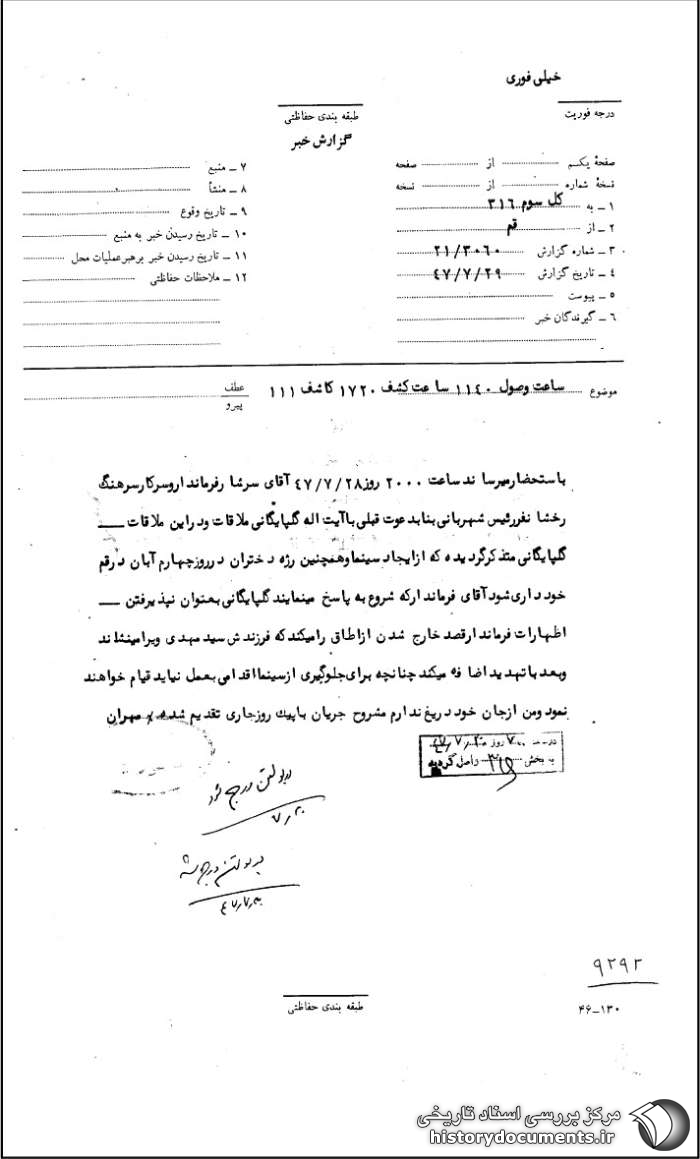 خیلی فوری
درجه فوریت
طبقه بندی حفاظتی
گزارش خبر
صفحهٔ یکم ... از ... صفحه
نسخهٔ شماره ... از ... نسخه
۱ ـ به کل سوم ۳۱۶
۲ ـ از قم
۳ ـ شماره گزارش ۲۱/۳۰۶۰
۴ ـ تاریخ گزارش ۴۷/۷/۲۹
۵ ـ پیوست
۶ ـ گیرندگان خبر
۷ ـ منبع
۸ ـ منشأ
۹ ـ تاریخ وقوع
۱۰ ـ تاریخ رسیدن خبر به منبع
۱۱ ـ تاریخ رسیدن خبر برهبر عملیات محل
۱۲ ـ ملاحظات حفاظتی
موضوع ساعت وصول ۱۱۴۰ ساعت کشف ۱۷۲۰ کاشف ۱۱۱
عطف
پیرو
باستحضار میرساند ساعت ۲۰۰۰ روز ۴۷/۷/۲۸ آقای سرشار فرماندار و سرکار سرهنگ
رخشا نفر رئیس شهربانی بنا بدعوت قبلی با آیت اله گلپایگانی ملاقات و در این ملاقات ــ
گلپایگانی متذکر گردیده که از ایجاد سینما و همچنین رژه دختران در روز چهارم آبان در قم
خودداری شود آقای فرماندار که شروع به پاسخ مینمایند گلپایگانی بعنوان نپذیرفتن ــ
اظهارات فرماندار قصد خارج شدن از اطاق را میکند که فرزندش سید مهدی ویرا مینشاند
و بعد با تهدید اضافه میکند چنانچه برای جلوگیری از سینما اقدامی بعمل نیاید قیام خواهند
نمود و من از جان خود دریغ ندارم مشروح جریان با پیک روز جاری تقدیم شده مهران
به بخش ۳۱۶ واصل گردید
در بولتن درج گردد
در بولتن درج شد
۹۲۹۲
۴۶ـ۱۳۰
طبقه بندی حفاظتی
مرکز بررسی اسناد تاریخی
historydocuments.ir